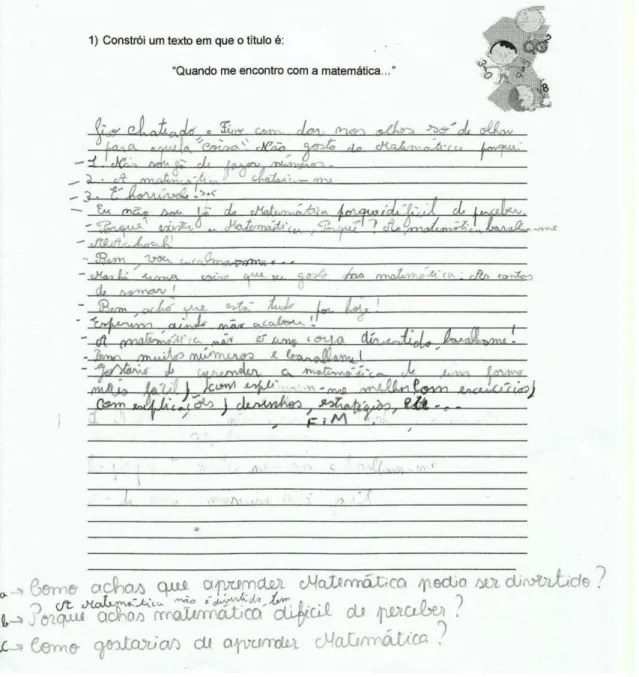 1) Constrói um texto em que o título é:
"Quando me encontro com a matemática..."
Fico chateado e Fico com dor nos olhos só de olhar
para aquela "coisa". Não gosto da Matemática porque:
- 1. Não sou fã de fazer números.
- 2. A matemática chateia-me
- 3. É horrível!
- Eu não sou fã da Matemática porque é difícil de perceber.
- Porquê existe a Matemática, Porquê? A matemática baralha-me
- Bem, vou acalmar-me...
- Mas há uma coisa que eu gosto na matemática: As contas
de somar!
- Bem, acho que está tudo por hoje!
- Esperem, ainda não acabou!!
- A matemática não é uma coisa divertida, baralhame!
- Tem muitos números e baralhame!
- Gostaria de aprender a matemática de uma forma
mais fácil, (com expliquem-me melhor, com exercícios,
com explicações, desenhos, estratégias, etc...
FIM
a → Como achas que aprender Matemática podia ser divertido?
A Matemática não é divertida, tem
b → Porque achas matemática difícil de perceber?
c → Como gostarias de aprender Matemática?